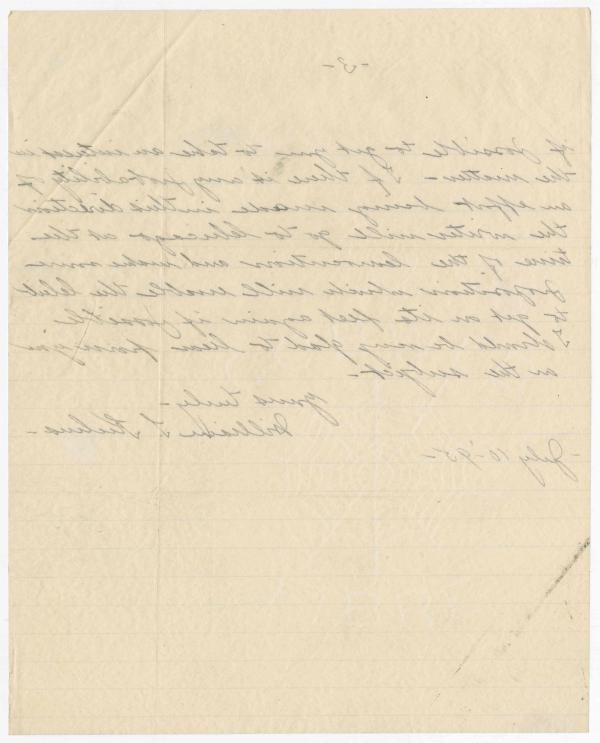 -3-
if possible to get you to take an interest in
the matter - If there is any probability of
an effort being made in this direction
the writer will go to Chicago at the
time of the Convention and make some
proposition which will enable the Club
to get on its feet again if possible
I should be very glad to hear from you
on the subject -
Yours truly -
William S
- July 10 - 95 -